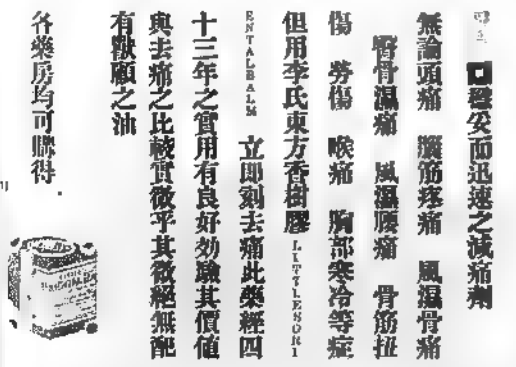 穩妥而迅速之減痛劑
無論頭痛 腦筋疼痛 風濕骨痛
骨濕痛 風濕腰痛 骨筋扭
傷 勞傷 喉痛 胸部寒冷等症
但用李氏東方香樹膠 LITTLESORI
ENTALBALM 立即刻去痛此藥經四
十三年之實用有良好効驗其價值
與去痛之比較實微乎其微絕無配
有獸脂之油
各藥房均可購得